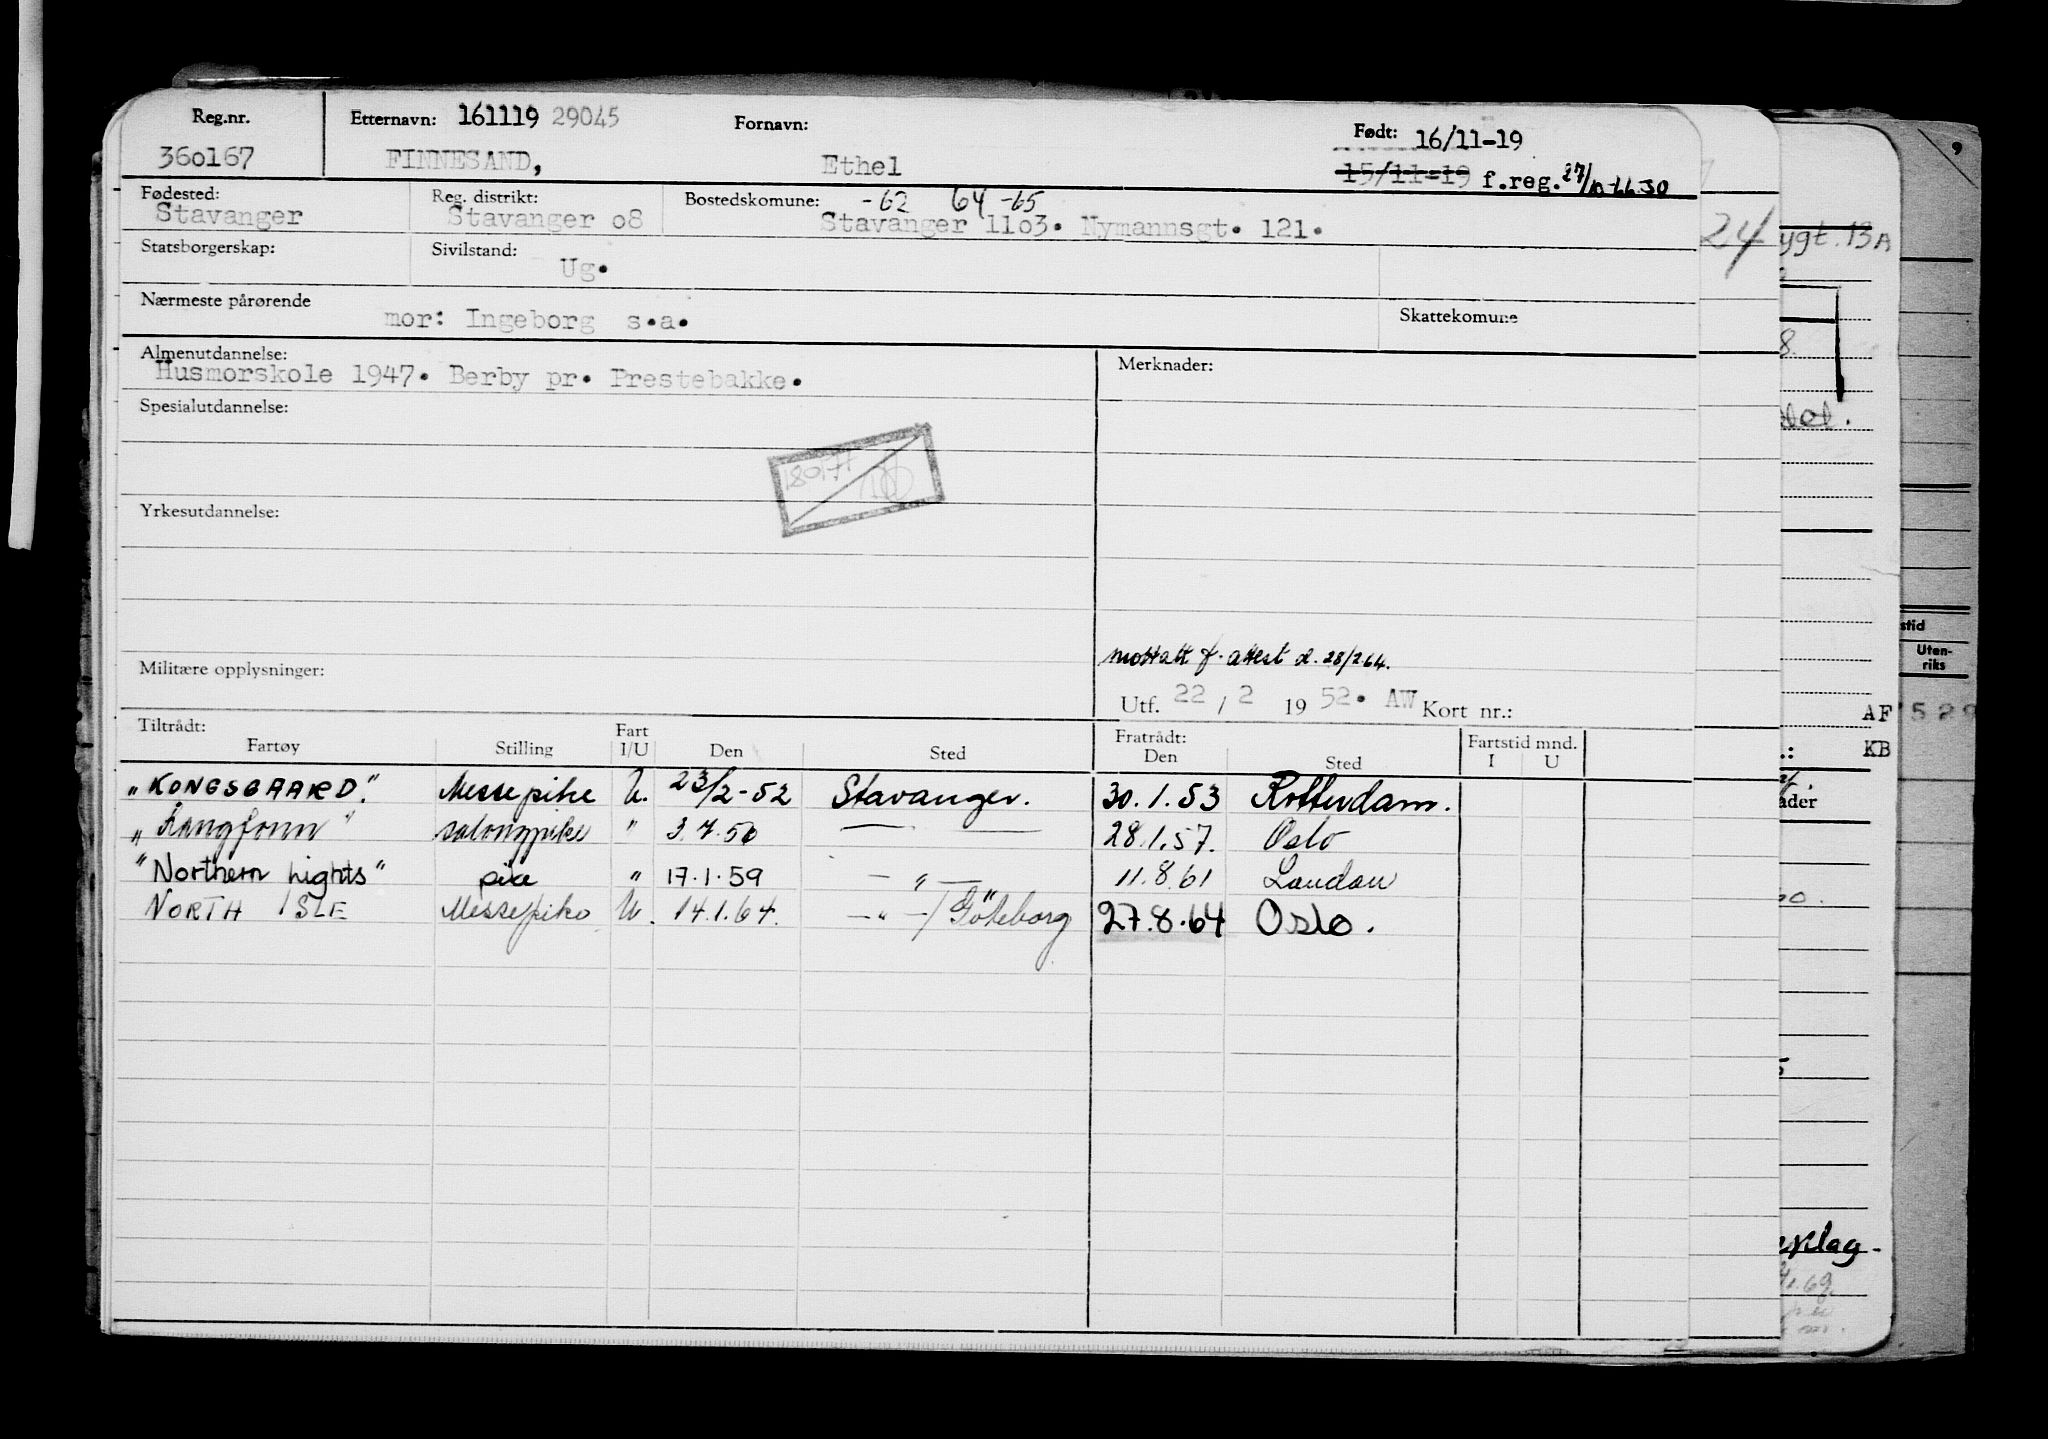 Reg.nr. Etternavn: 161119 29045 Fornavn: Født: 16/11-19
360167 FINNESAND, Ethel 15/11-19 f.reg. 27/10-66 SO
Fødested: Reg. distrikt: Bostedskomune: -62 64 -65
Stavanger Stavanger 08 Stavanger 1103. Nymannsgt. 121.
Statsborgerskap: Sivilstand:
Ug.
Nærmeste pårørende Skattekomune
mor: Ingeborg s.a.
Almenutdannelse: Merknader:
Husmorskole 1947. Berby pr. Prestebakke.
Spesialutdannelse:
Yrkesutdannelse:
mottatt f. attest d. 28/2 64.
Militære opplysninger:
Utf. 22 / 2 19 52. AW Kort nr.:
Tiltrådt: Fart Fratrådt: Fartstid mnd.
Fartøy Stilling I/U Den Sted Den Sted I U
"KONGSGAARD". Messepike U. 23/2-52 Stavanger. 30.1.53 Rotterdam.
"Langfonn" salongpike " 3.7.56 — — 28.1.57. Oslo
"Northern Lights" pike " 17.1.59 — " — 11.8.61 Landau
NORTH ISLE Messepike U. 14.1.64. — " —/Göteborg 27.8.64 Oslo.
24
ygt. 13A
8.
9
stid
Uten-
riks
AF
529
KB